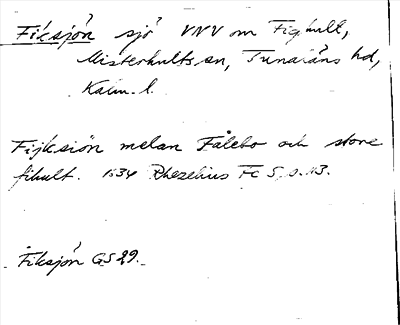 Fiksjön sjö VNV om Fighult,
Misterhults sn, Tunaläns hd,
Kalm. l.
Fijksiön melan Fålebo och store
fikult. 1634 Rhezelius Fc 5, s. 113.
Fiksjön GS 29.